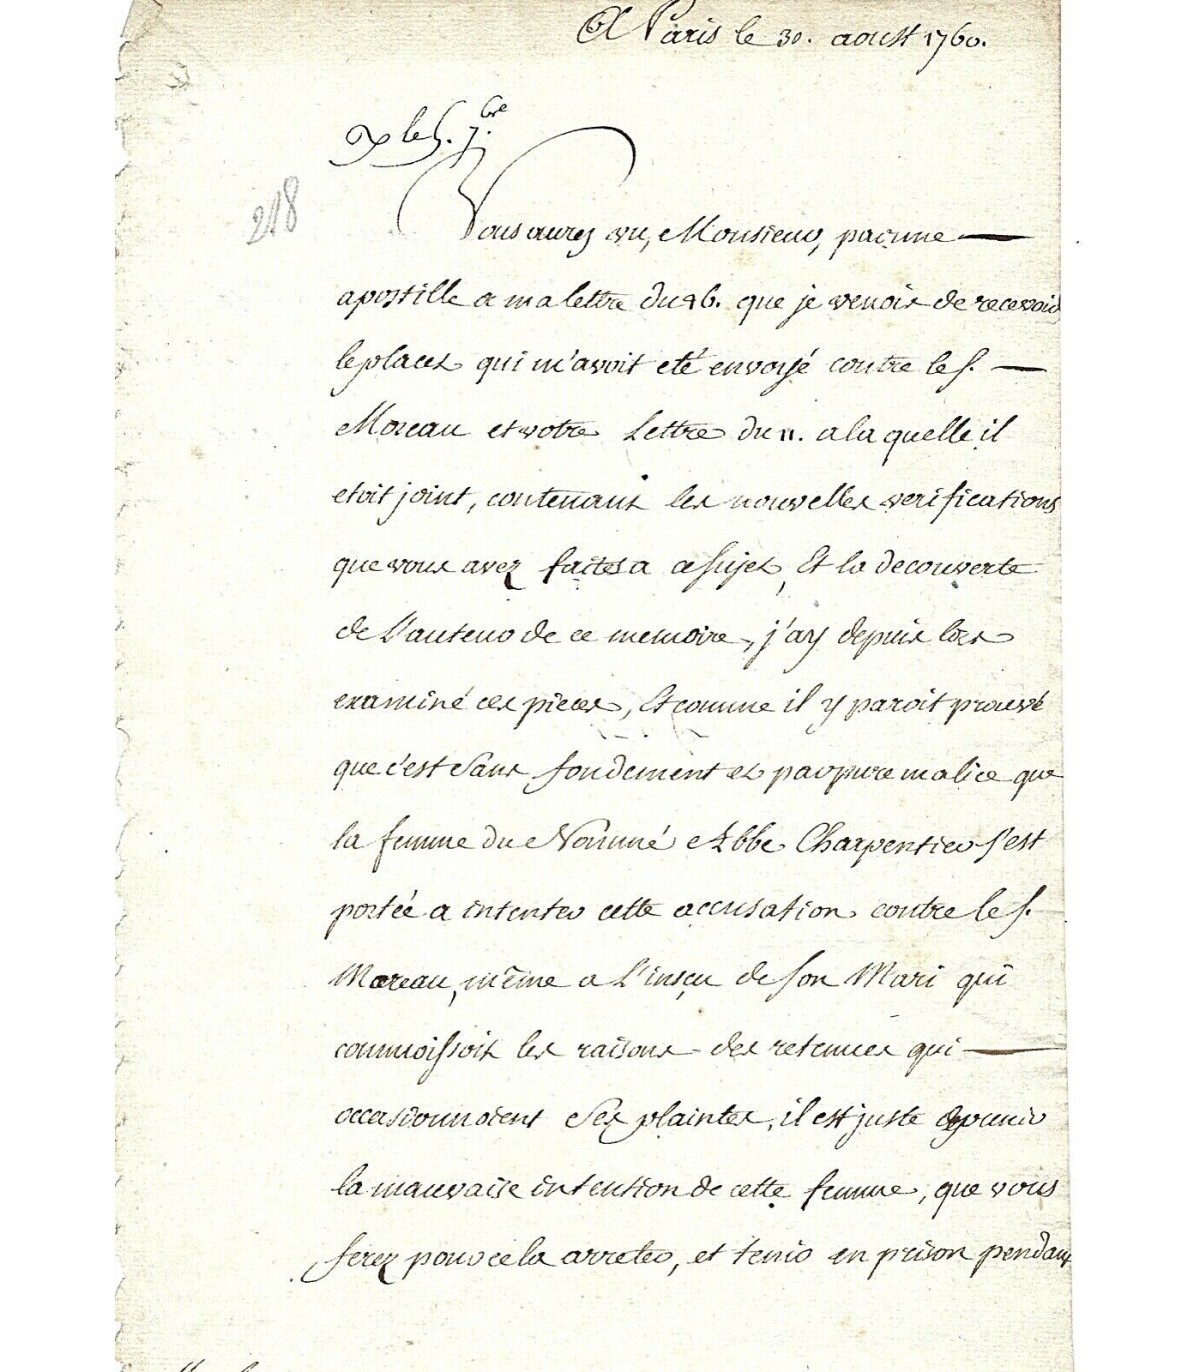 A Paris le 30. aoust 1760.
le 5. 7.bre
218
Vous aurez vu, Monsieur, par une
apostille a ma lettre du 26. que je venois de recevoir
le placet qui m'avoit eté envoyé contre le S.
Moreau et votre Lettre du 11. a laquelle il
etoit joint, contenant les nouvelles verifications
que vous avez faites a ce sujet, Et la decouverte
de L'auteur de ce memoire, j'ay depuis lors
examiné ces pieces, Et comme il y paroit prouvé
que c'est sans fondement et par pure malice que
la femme du Nommé Abbe Charpentier s'est
portée a intenter cette accusation contre le S.
Moreau, même a L'insçu de son Mari qui
connoissoit les raisons des retenues qui
occasionnoient Ses plaintes, il est juste de punir
la mauvaise intention de cette femme, que vous
ferez pour cela arreter, et tenir en prison pendant